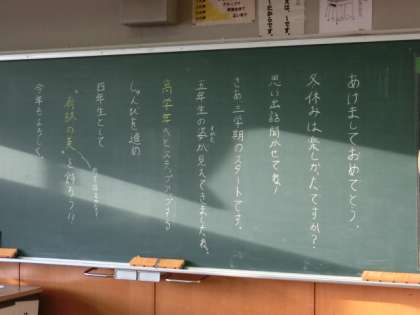 あけましておめでとう。
冬休みは楽しかったですか?
思い出話聞かせてね!
さあ三学期のスタートです。
五年生の姿が見えてきましたね。
高学年へとステップアップする
じゅんびを進め
四年生として
"有終の美"を飾ろう!!
今年もよろしく。